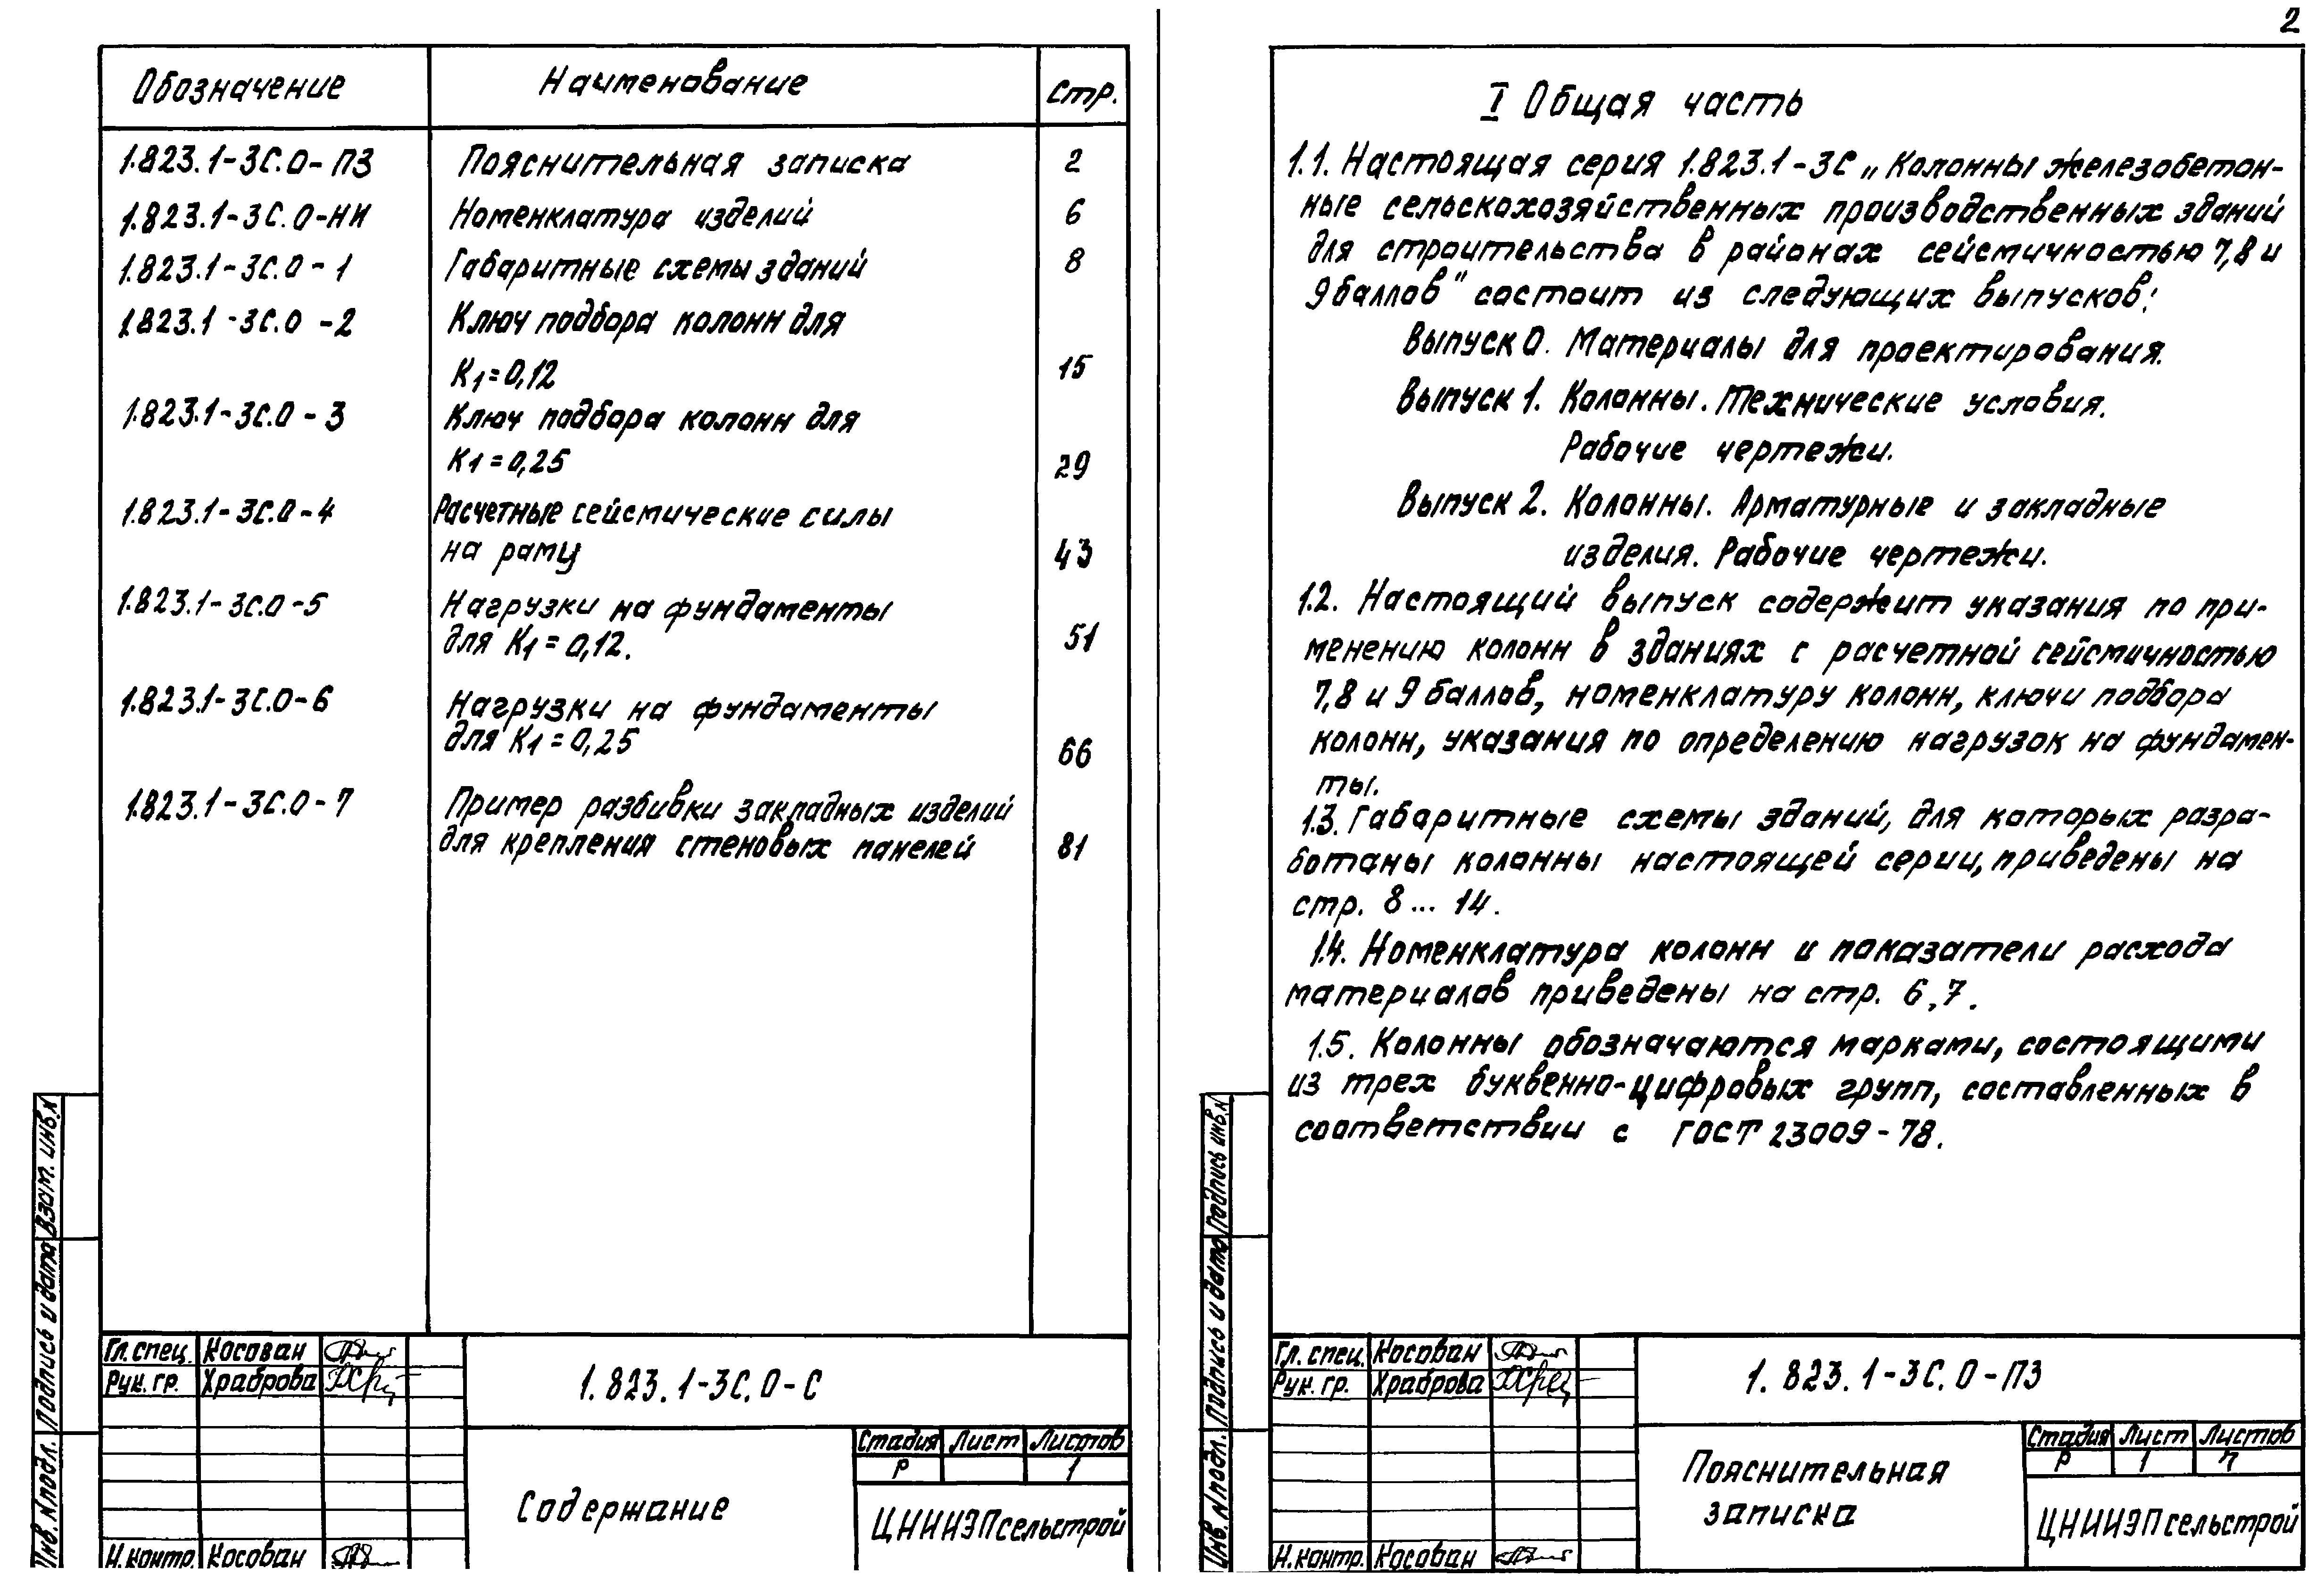 Обозначение Наименование Стр.
1.823.1-3С.0-ПЗ Пояснительная записка 2
1.823.1-3С.0-НИ Номенклатура изделий 6
1.823.1-3С.0-1 Габаритные схемы зданий 8
1.823.1-3С.0-2 Ключ подбора колонн для
К1=0,12 15
1.823.1-3С.0-3 Ключ подбора колонн для
К1=0,25 29
1.823.1-3С.0-4 Расчетные сейсмические силы
на раму 43
1.823.1-3С.0-5 Нагрузки на фундаменты
для К1=0,12. 51
1.823.1-3С.0-6 Нагрузки на фундаменты
для К1=0,25 66
1.823.1-3С.0-7 Пример разбивки закладных изделий
для крепления стеновых панелей 81
Взам. инв.N
Подпись и дата
Инв. N подл.
Гл. спец. Косован
Рук. гр. Храброва
Н. контр. Косован
1.823.1-3С.0-С
Содержание
Стадия Лист Листов
Р 1
ЦНИИЭПсельстрой
2
I Общая часть
1.1. Настоящая серия 1.823.1-3С „Колонны железобетон-
ные сельскохозяйственных производственных зданий
для строительства в районах сейсмичностью 7,8 и
9 баллов" состоит из следующих выпусков:
Выпуск 0. Материалы для проектирования.
Выпуск 1. Колонны. Технические условия.
Рабочие чертежи.
Выпуск 2. Колонны. Арматурные и закладные
изделия. Рабочие чертежи.
1.2. Настоящий выпуск содержит указания по при-
менению колонн в зданиях с расчетной сейсмичностью
7,8 и 9 баллов, номенклатуру колонн, ключи подбора
колонн, указания по определению нагрузок на фундамен-
ты.
1.3. Габаритные схемы зданий, для которых разра-
ботаны колонны настоящей серии, приведены на
стр. 8 ... 14.
1.4. Номенклатура колонн и показатели расхода
материалов приведены на стр. 6,7.
1.5. Колонны обозначаются марками, состоящими
из трех буквенно-цифровых групп, составленных в
соответствии с ГОСТ 23009-78.
Подпись инв.N
Подпись и дата
Инв. N подл.
Гл. спец. Косован
Рук. гр. Храброва
Н. контр. Косован
1.823.1-3С.0-ПЗ
Пояснительная
записка
Стадия Лист Листов
Р 1 7
ЦНИИЭПсельстрой